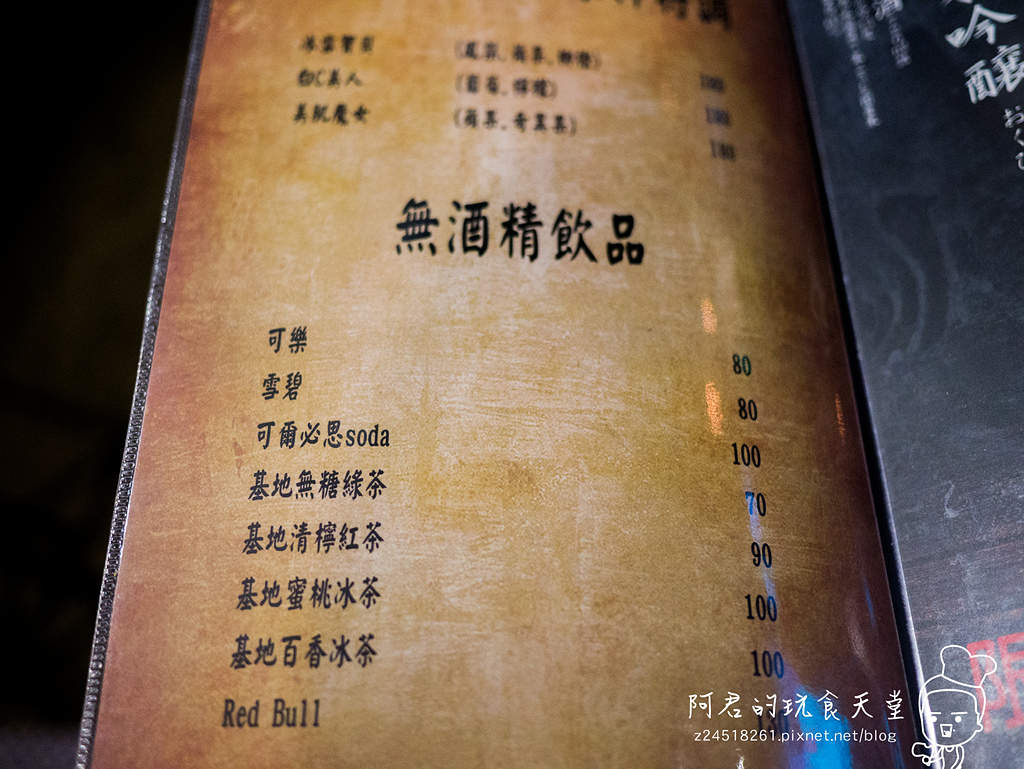 冰雪雙貝 (鳳梨,蘋果,柳橙) 180
白C美人 (藍莓,檸檬) 180
美肌魔女 (蘋果,奇異果) 180
無酒精飲品
可樂 80
雪碧 80
可爾必思soda 100
基地無糖綠茶 70
基地清檸紅茶 90
基地蜜桃冰茶 100
基地百香冰茶 100
Red Bull
吟釀
阿君的玩食天堂
z24518261.pixnet.net/blog